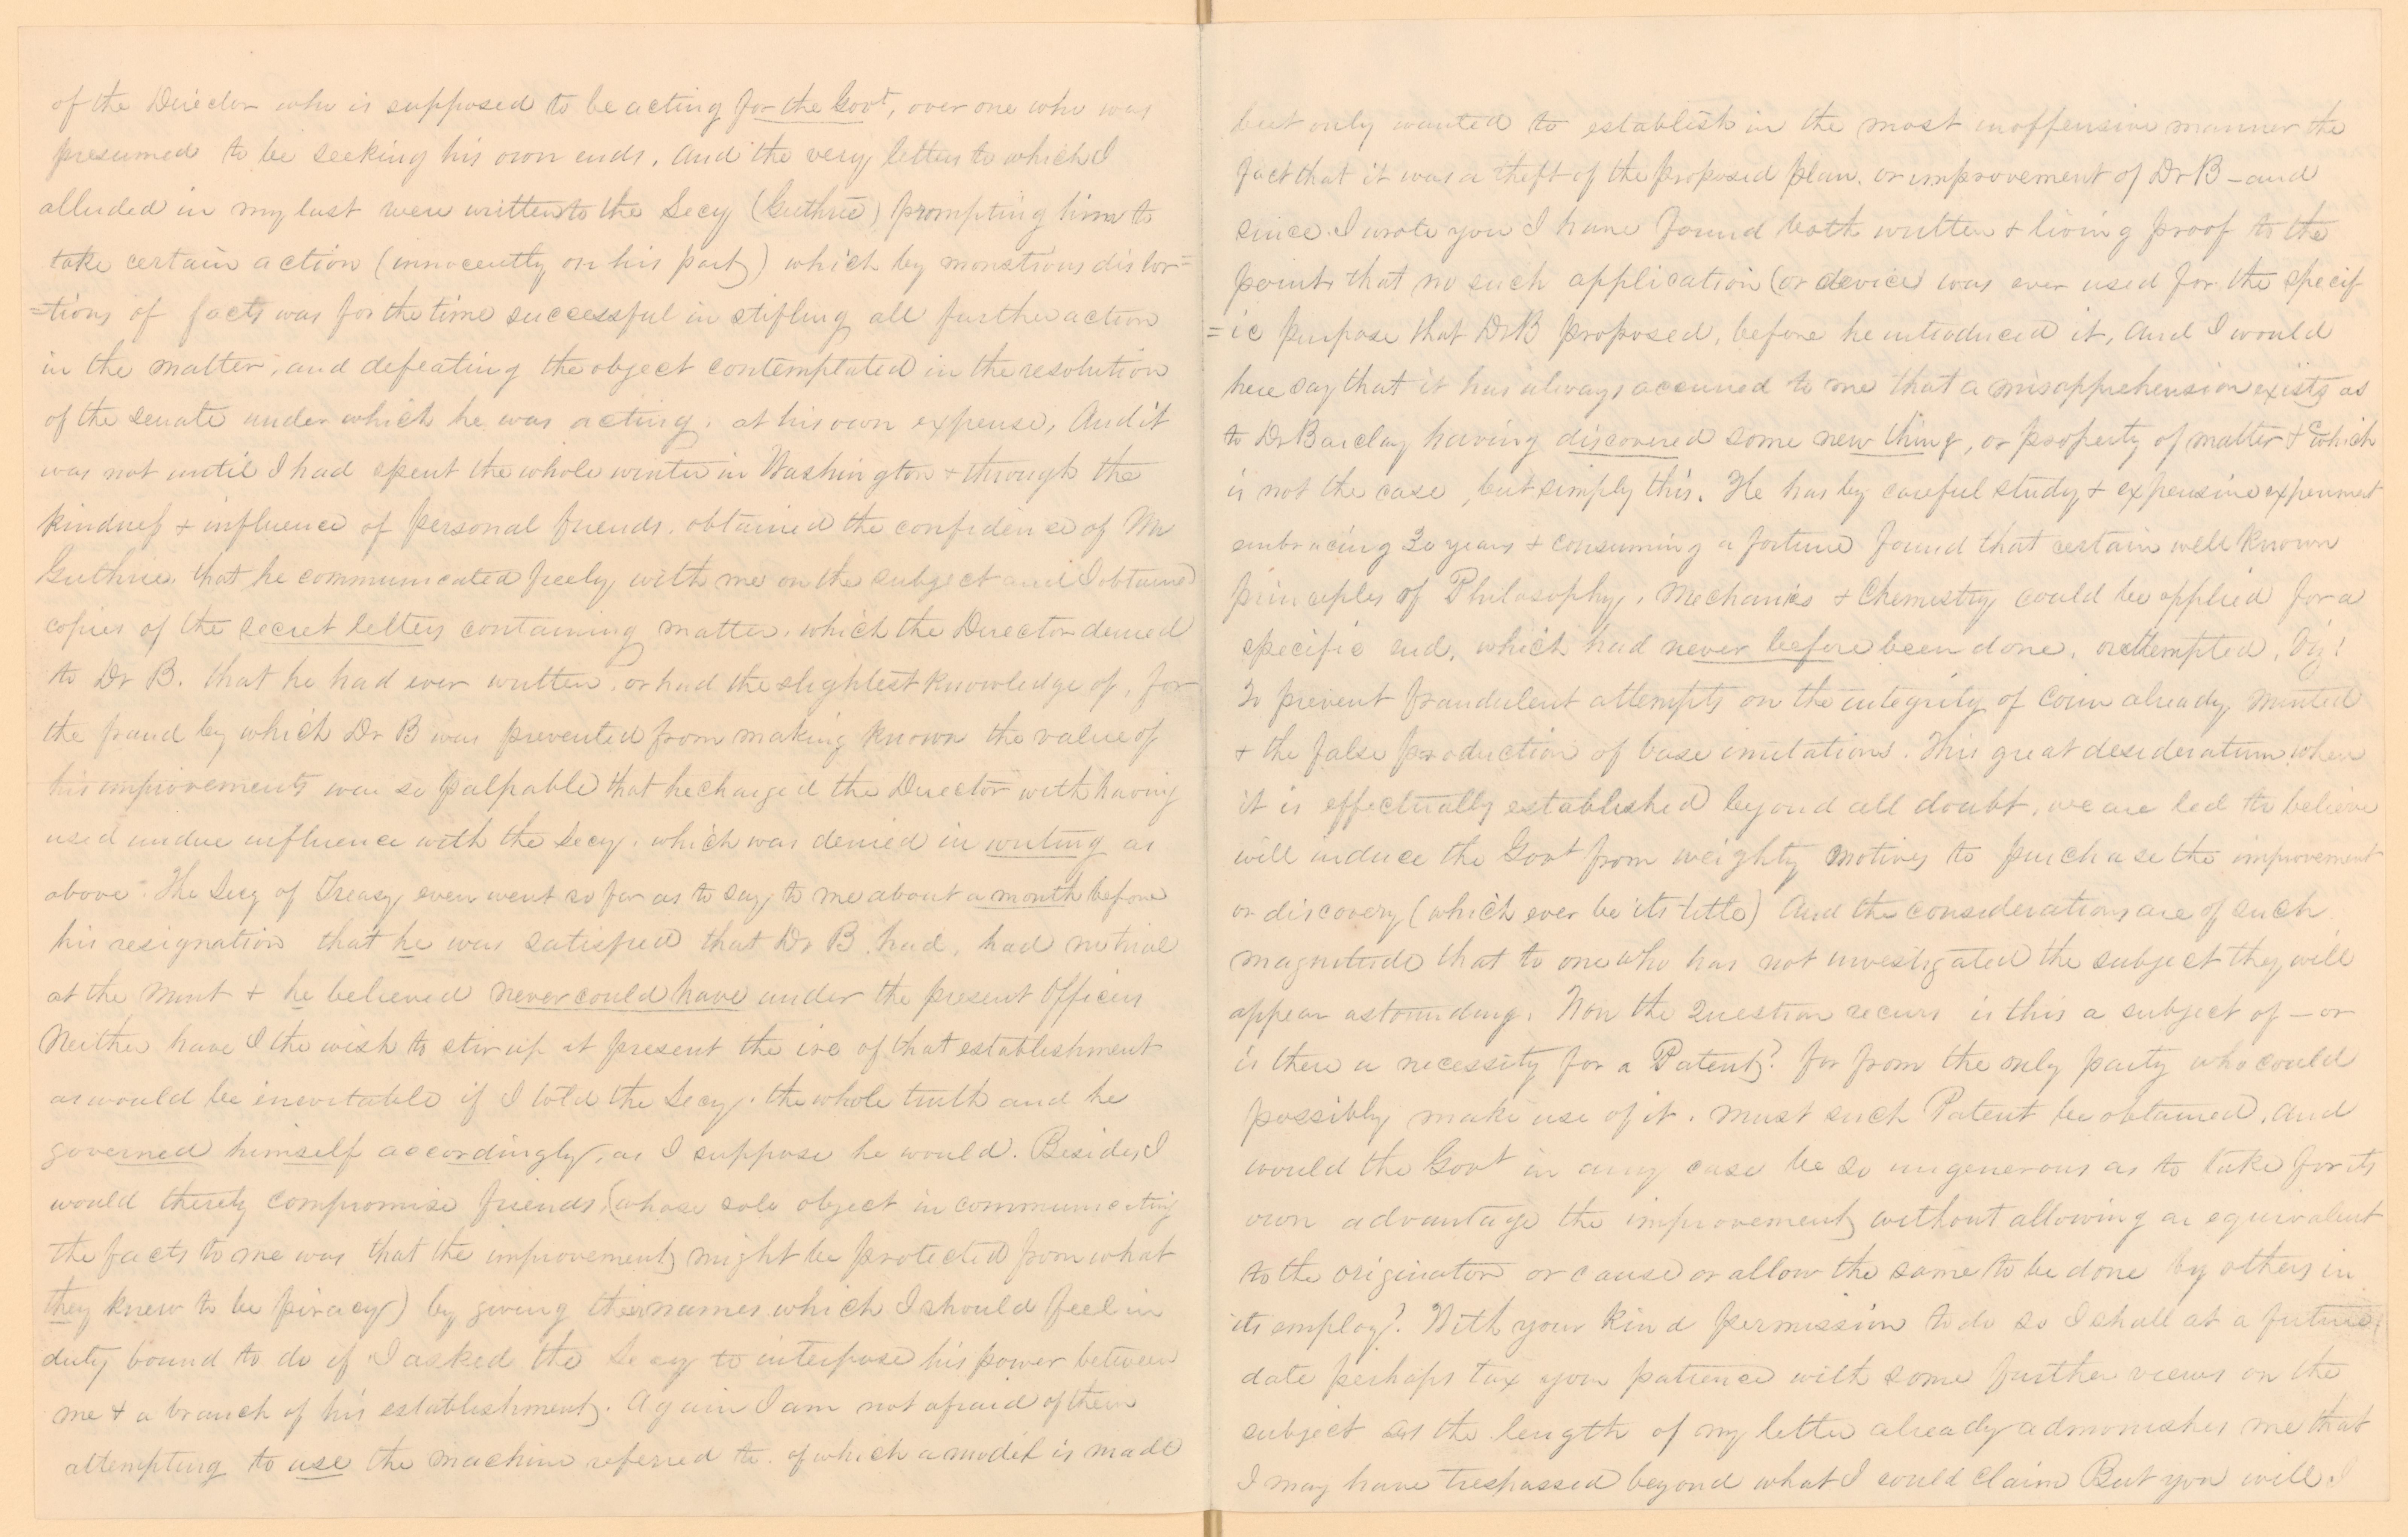 of the Director who is supposed to be acting for the Govt, over one who was
presumed to be seeking his own ends. And the very letters to which I
alluded in my last were written to the Secy (Guthrie) prompting him to
take certain action (innocently on his part) which by monstrous distor=
=tions of facts was for the time successful in stifling all further action
in the matter, and defeating the object contemplated in the resolution
of the senate under which he was acting, at his own expense, And it
was not until I had spent the whole winter in Washington & through the
kindness & influence of personal friends, obtained the confidence of Mr
Guthrie, that he communicated freely with me on the subject and I obtained
copies of the secret letters containing matter, which the Director denied
to Dr B. that he had ever written, or had the slightest knowledge of, for
the fraud by which Dr B was prevented from making known the value of
his improvements was so palpable that he charged the Director with having
used undue influence with the Secy, which was denied in writing as
above. The Secy of Treasy even went so far as to say to me about a month before
his resignation that he was satisfied that Dr B. had, had no trial
at the Mint & he believed never could have under the present Officers
Neither have I the wish to stir up at present the ire of that establishment
as would be inevitable if I told the Secy. the whole truth and he
governed himself accordingly, as I suppose he would. Besides I
would thereby compromise friends, (whose sole object in communicating
the facts to me was that the improvements might be protected from what
they knew to be piracy) by giving their names which I should feel in
duty bound to do if I asked the Secy to interpose his power between
me & a branch of his establishment. Again I am not afraid of their
attempting to use the machine referred to, of which a model is made
but only wanted to establish in the most inoffensive manner the
fact that it was a theft of the proposed plan, or improvement of Dr B – and
since I wrote you I have found both written & living proof to the
point that no such application (or device) was ever used for the specif
=ic purpose that Dr B proposed, before he introduced it, And I would
here say that it has always occurred to me that a misapprehension exists as
to Dr Barclay having discovered some new thing, or property of matter &c which
is not the case, but simply this. He has by careful study & expensive experiment
embracing 30 years & consuming a fortune found that certain well known
principles of Philosophy, Mechanics & Chemistry could be applied for a
specific end, which had never before been done, or attempted, Viz!
To prevent fraudulent attempts on the integrity of Coin already minted
& the false production of base imitations. This great desideratum when
it is effectually established beyond all doubt, we are led to believe
will induce the Govt from weighty motives to purchase the improvement
or discovery (which ever be its title) And the considerations are of such
magnitude that to one who has not investigated the subject they will
appear astounding. Now the Question recurs is this a subject of – or
is there a necessity for a Patent? for from the only party who could
possibly make use of it, must such Patent be obtained, and
would the Govt in any case be so ungenerous as to take for its
own advantage the improvements without allowing an equivalent
to the originator or cause or allow the same to be done by others in
its employ? With your kind permission to do so I shall at a future
date perhaps tax your patience with some further views on the
subject as the length of my letter already admonishes me that
I may have trespassed beyond what I could claim But you will I